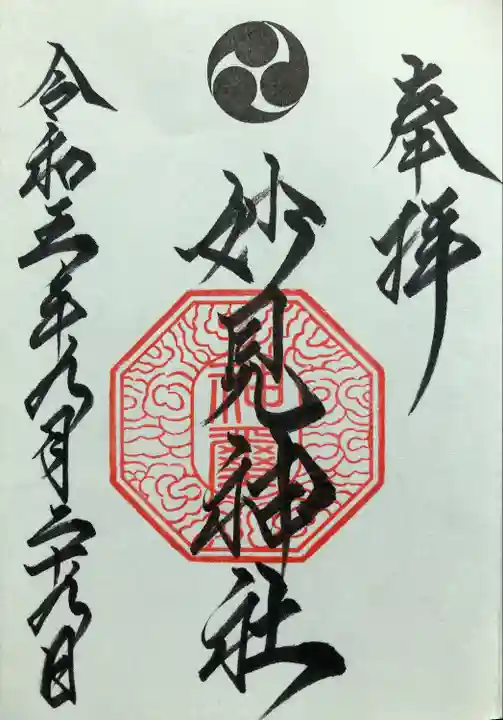 奉拝
妙見神社
令和三年九月二十九日